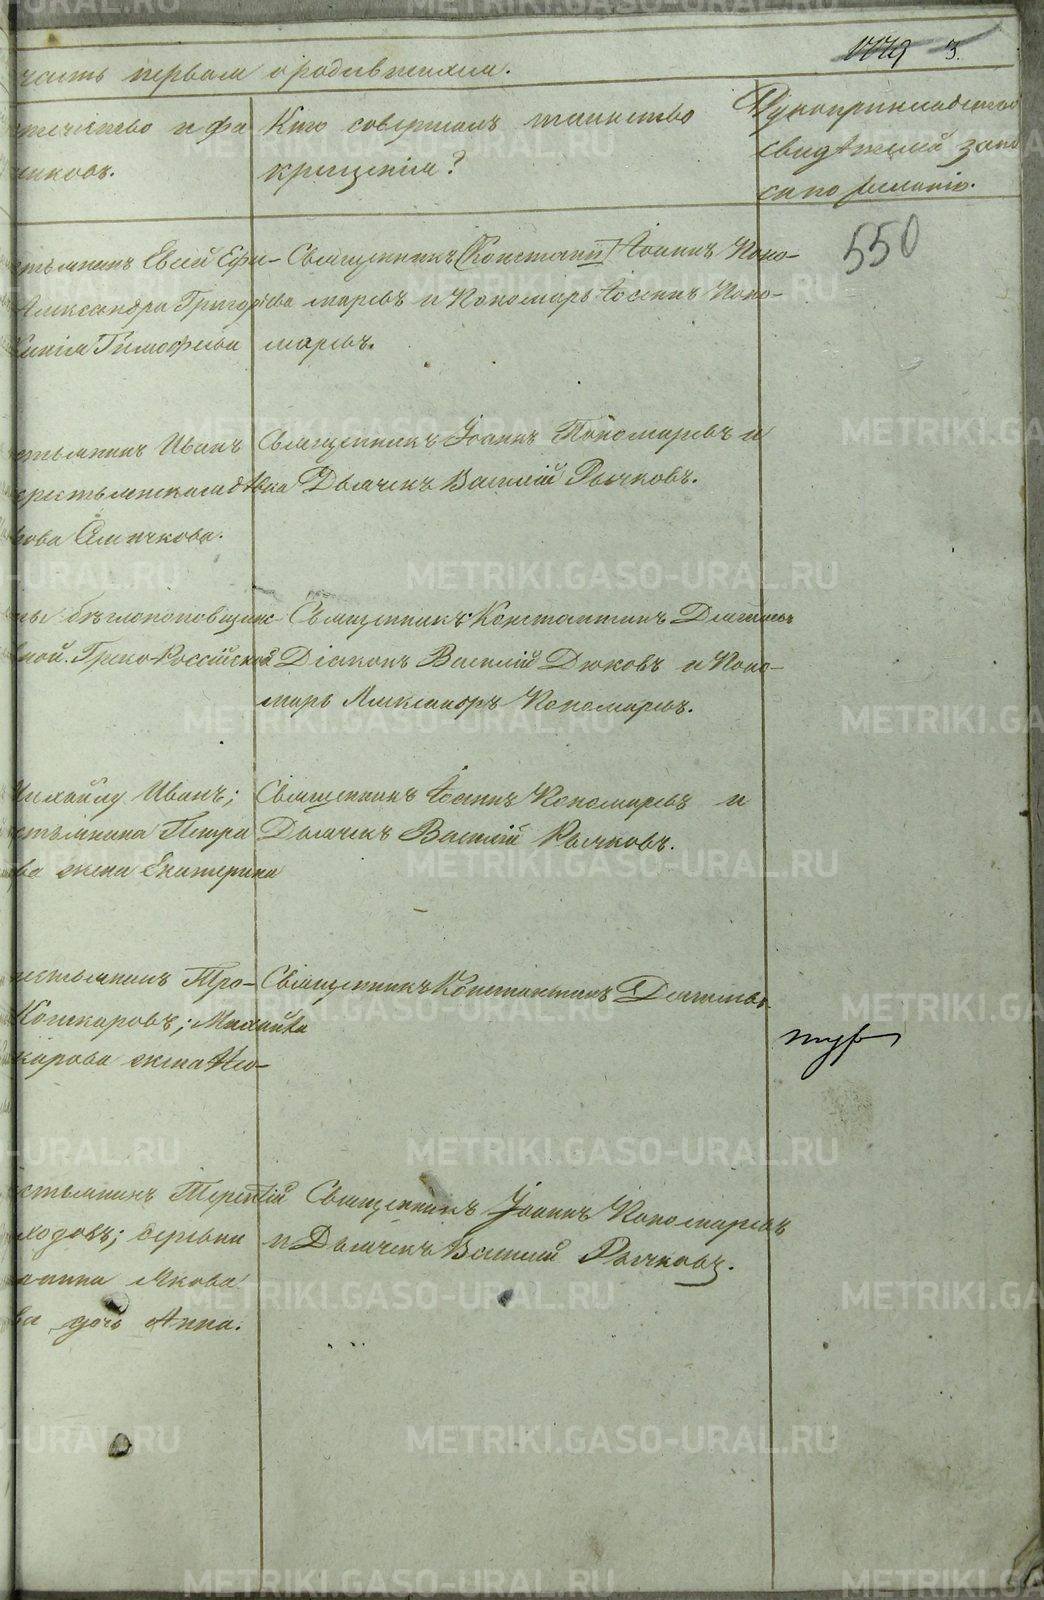 часть первая о родившихся.
1779 3.
отчество и фа
миковъ.
Кто совершалъ таинство
крещенія?
Рукоприкладство
свидѣтелей запи
си по желанію.
550
стьянинъ Евсей Ефи-
Александра Григорьева
Тимофеева
Священникъ (Константи) Іоаннъ Поно-
маревъ и Пономарь Іосифъ Поно-
маревъ.
стьянинъ Иванъ
крестьянская дѣвка
Священникъ Іоаннъ Пономаревъ и
Дьячекъ Василій Рычковъ.
бѣглопоповщинс-
Греко-Россійской
Священникъ Константинъ
Діаконъ Василій Дюковъ и Поно-
марь Александръ Пономаревъ.
Михайлу Иванъ;
стьянина Петра
ва жена Екатерина
Священникъ Іоаннъ Пономаревъ и
Дьячекъ Василій Рычковъ.
рестьянинъ Тро-
Кошкаровъ; Михайла
карова жена
Священникъ Константинъ
стьянинъ Терентій
ходовъ;
Якова
ва дочь Анна.
Священникъ Іоаннъ Пономаревъ
и Дьячекъ Василій Рычковъ.
METRIKI.GASO-URAL.RU